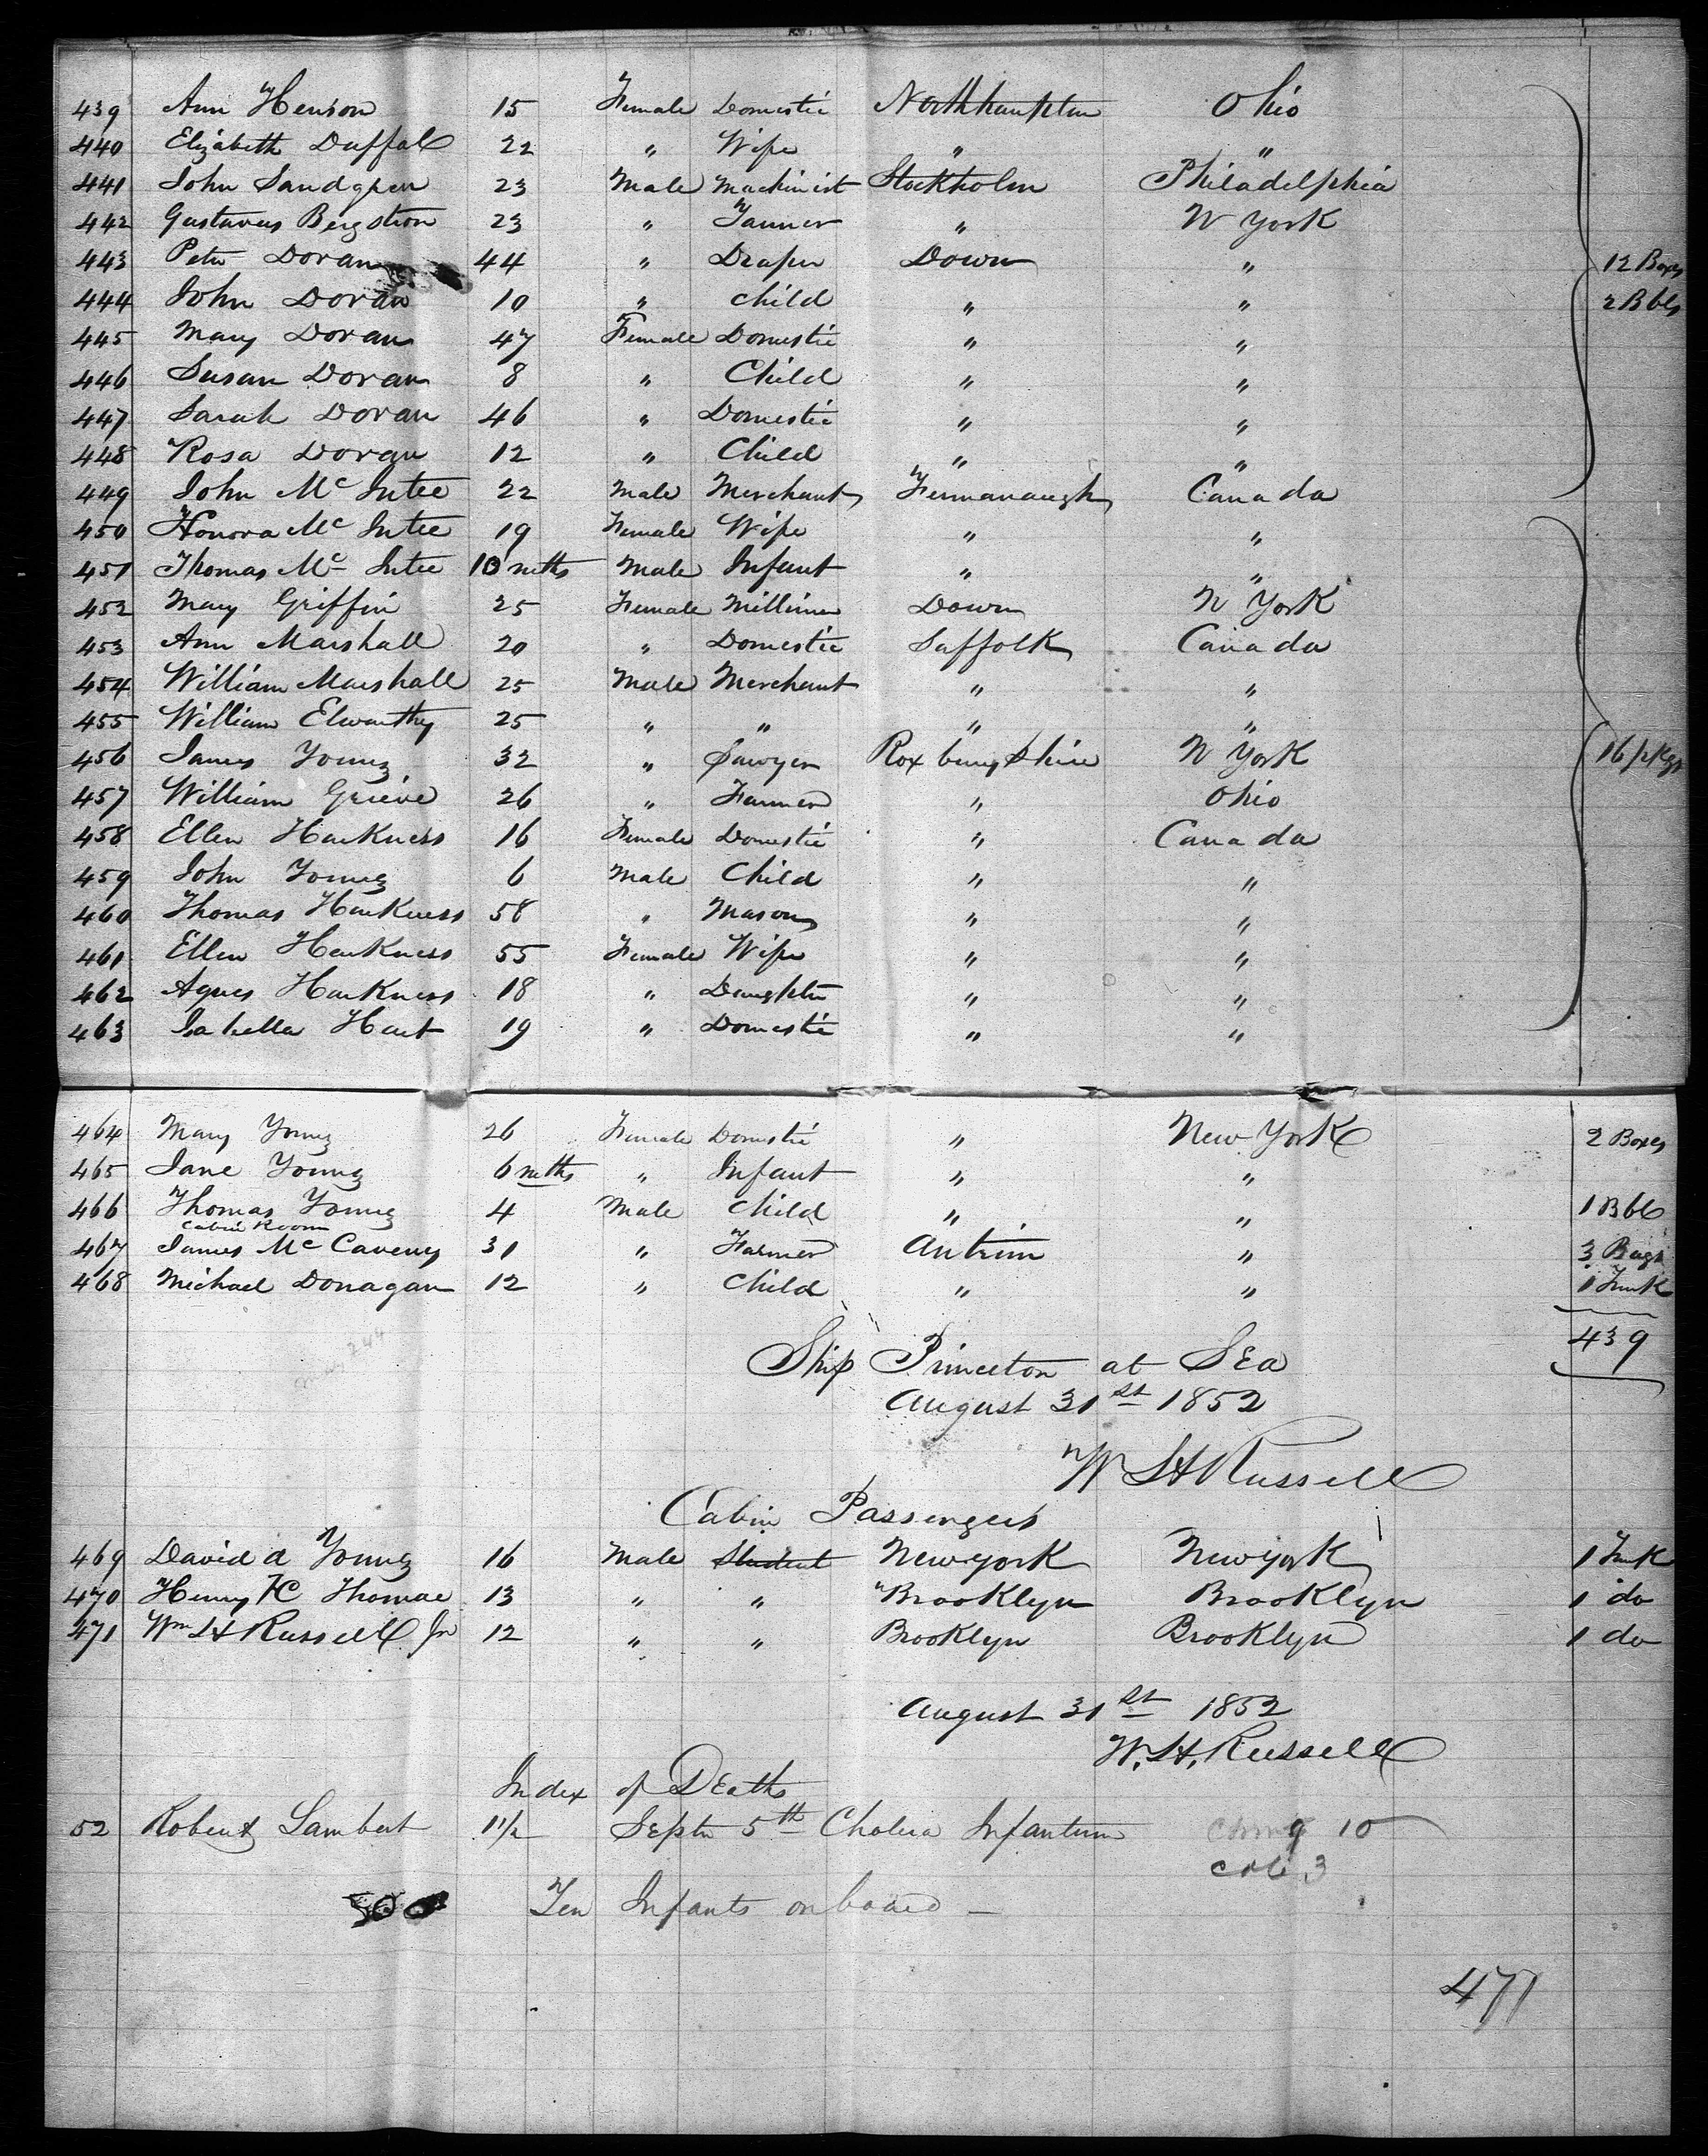 439 Ann Henson 15 Female Domestic Northhampton Ohio
440 Elizabeth Duffal 22 " Wife " "
441 John Sandgren 23 Male Machinist Stockholm Philadelphia
442 Gustavus Bergstrom 23 " Tanner " N York
443 Peter Doran 44 " Draper Down " 12 Boxes
444 John Doran 10 " Child " " 2 Bbls
445 Mary Doran 47 Female Domestic " "
446 Susan Doran 8 " Child " "
447 Sarah Doran 46 " Domestic " "
448 Rosa Doran 12 " Child " "
449 John Mc Intee 22 Male Merchant Fermanaugh Canada
450 Honora Mc Intee 19 Female Wife " "
451 Thomas Mc Intee 10 mths Male Infant " "
452 Mary Griffin 25 Female Milliner Down N York
453 Ann Marshall 20 " Domestic Suffolk Canada
454 William Marshall 25 Male Merchant " "
455 William Elworthy 25 " " " "
456 James Young 32 " Sawyer Roxburyshire N York 16 pkgs
457 William Grieve 26 " Farmer " Ohio
458 Ellen Harkness 16 Female Domestic " Canada
459 John Young 6 Male Child " "
460 Thomas Harkness 58 " Mason " "
461 Ellen Harkness 55 Female Wife " "
462 Agnes Harkness 18 " Daughter " "
463 Isabella Hart 19 " Domestic " "
464 Mary Young 26 Female Domestic " New York 2 Boxes
465 Jane Young 6 mths " Infant " "
466 Thomas Young 4 Male Child " " 1 Bbl
Cabin Room
467 James Mc Caveny 31 " Farmer Antrim " 3 Bags
468 Michael Donagan 12 " Child " " 1 Trunk
439
Ship Princeton at Sea
August 31st 1852
W H Russell
Cabin Passengers
469 David A Young 16 Male Student New york New york 1 Trunk
470 Henry C Thomae 13 " " Brooklyn Brooklyn 1 do
471 Wm H Russell Jr 12 " " Brooklyn Brooklyn 1 do
August 31st 1852
W. H. Russell
Index of Deaths
52 Robert Lambert 1 1/2 Septr 5th Cholera Infantum 10
3
500 Ten Infants on board —
471